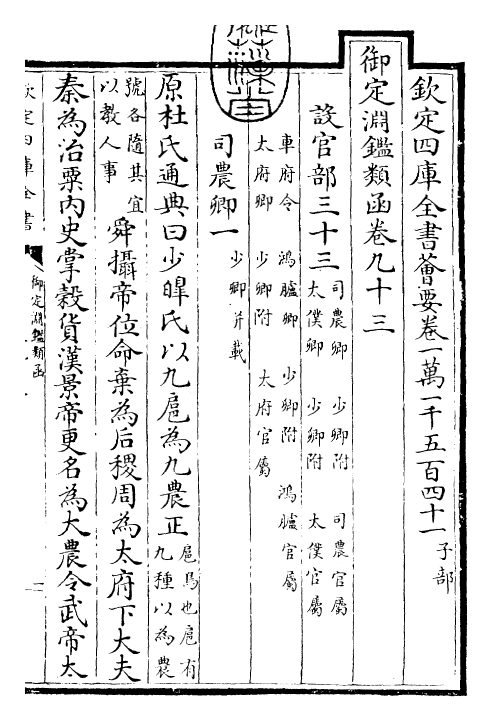 欽定四庫全書薈要卷一萬一千五百四十一 子部
御定淵鑑類函卷九十三
設官部三十三 司農卿 少卿附 司農官屬
太僕卿 少卿附 太僕官屬
車府令 鴻臚卿 少卿附 鴻臚官屬
太府卿 少卿附 太府官屬
司農卿一 少卿并載
原杜氏通典曰少皥氏以九扈為九農正 扈鳥也扈有
九種以為農
號各隨其宜
以教人事 舜攝帝位命棄為后稷周為太府下大夫
秦為治粟內史掌穀貨漢景帝更名為大農令武帝太
欽定四庫全書
御定淵鑑類函